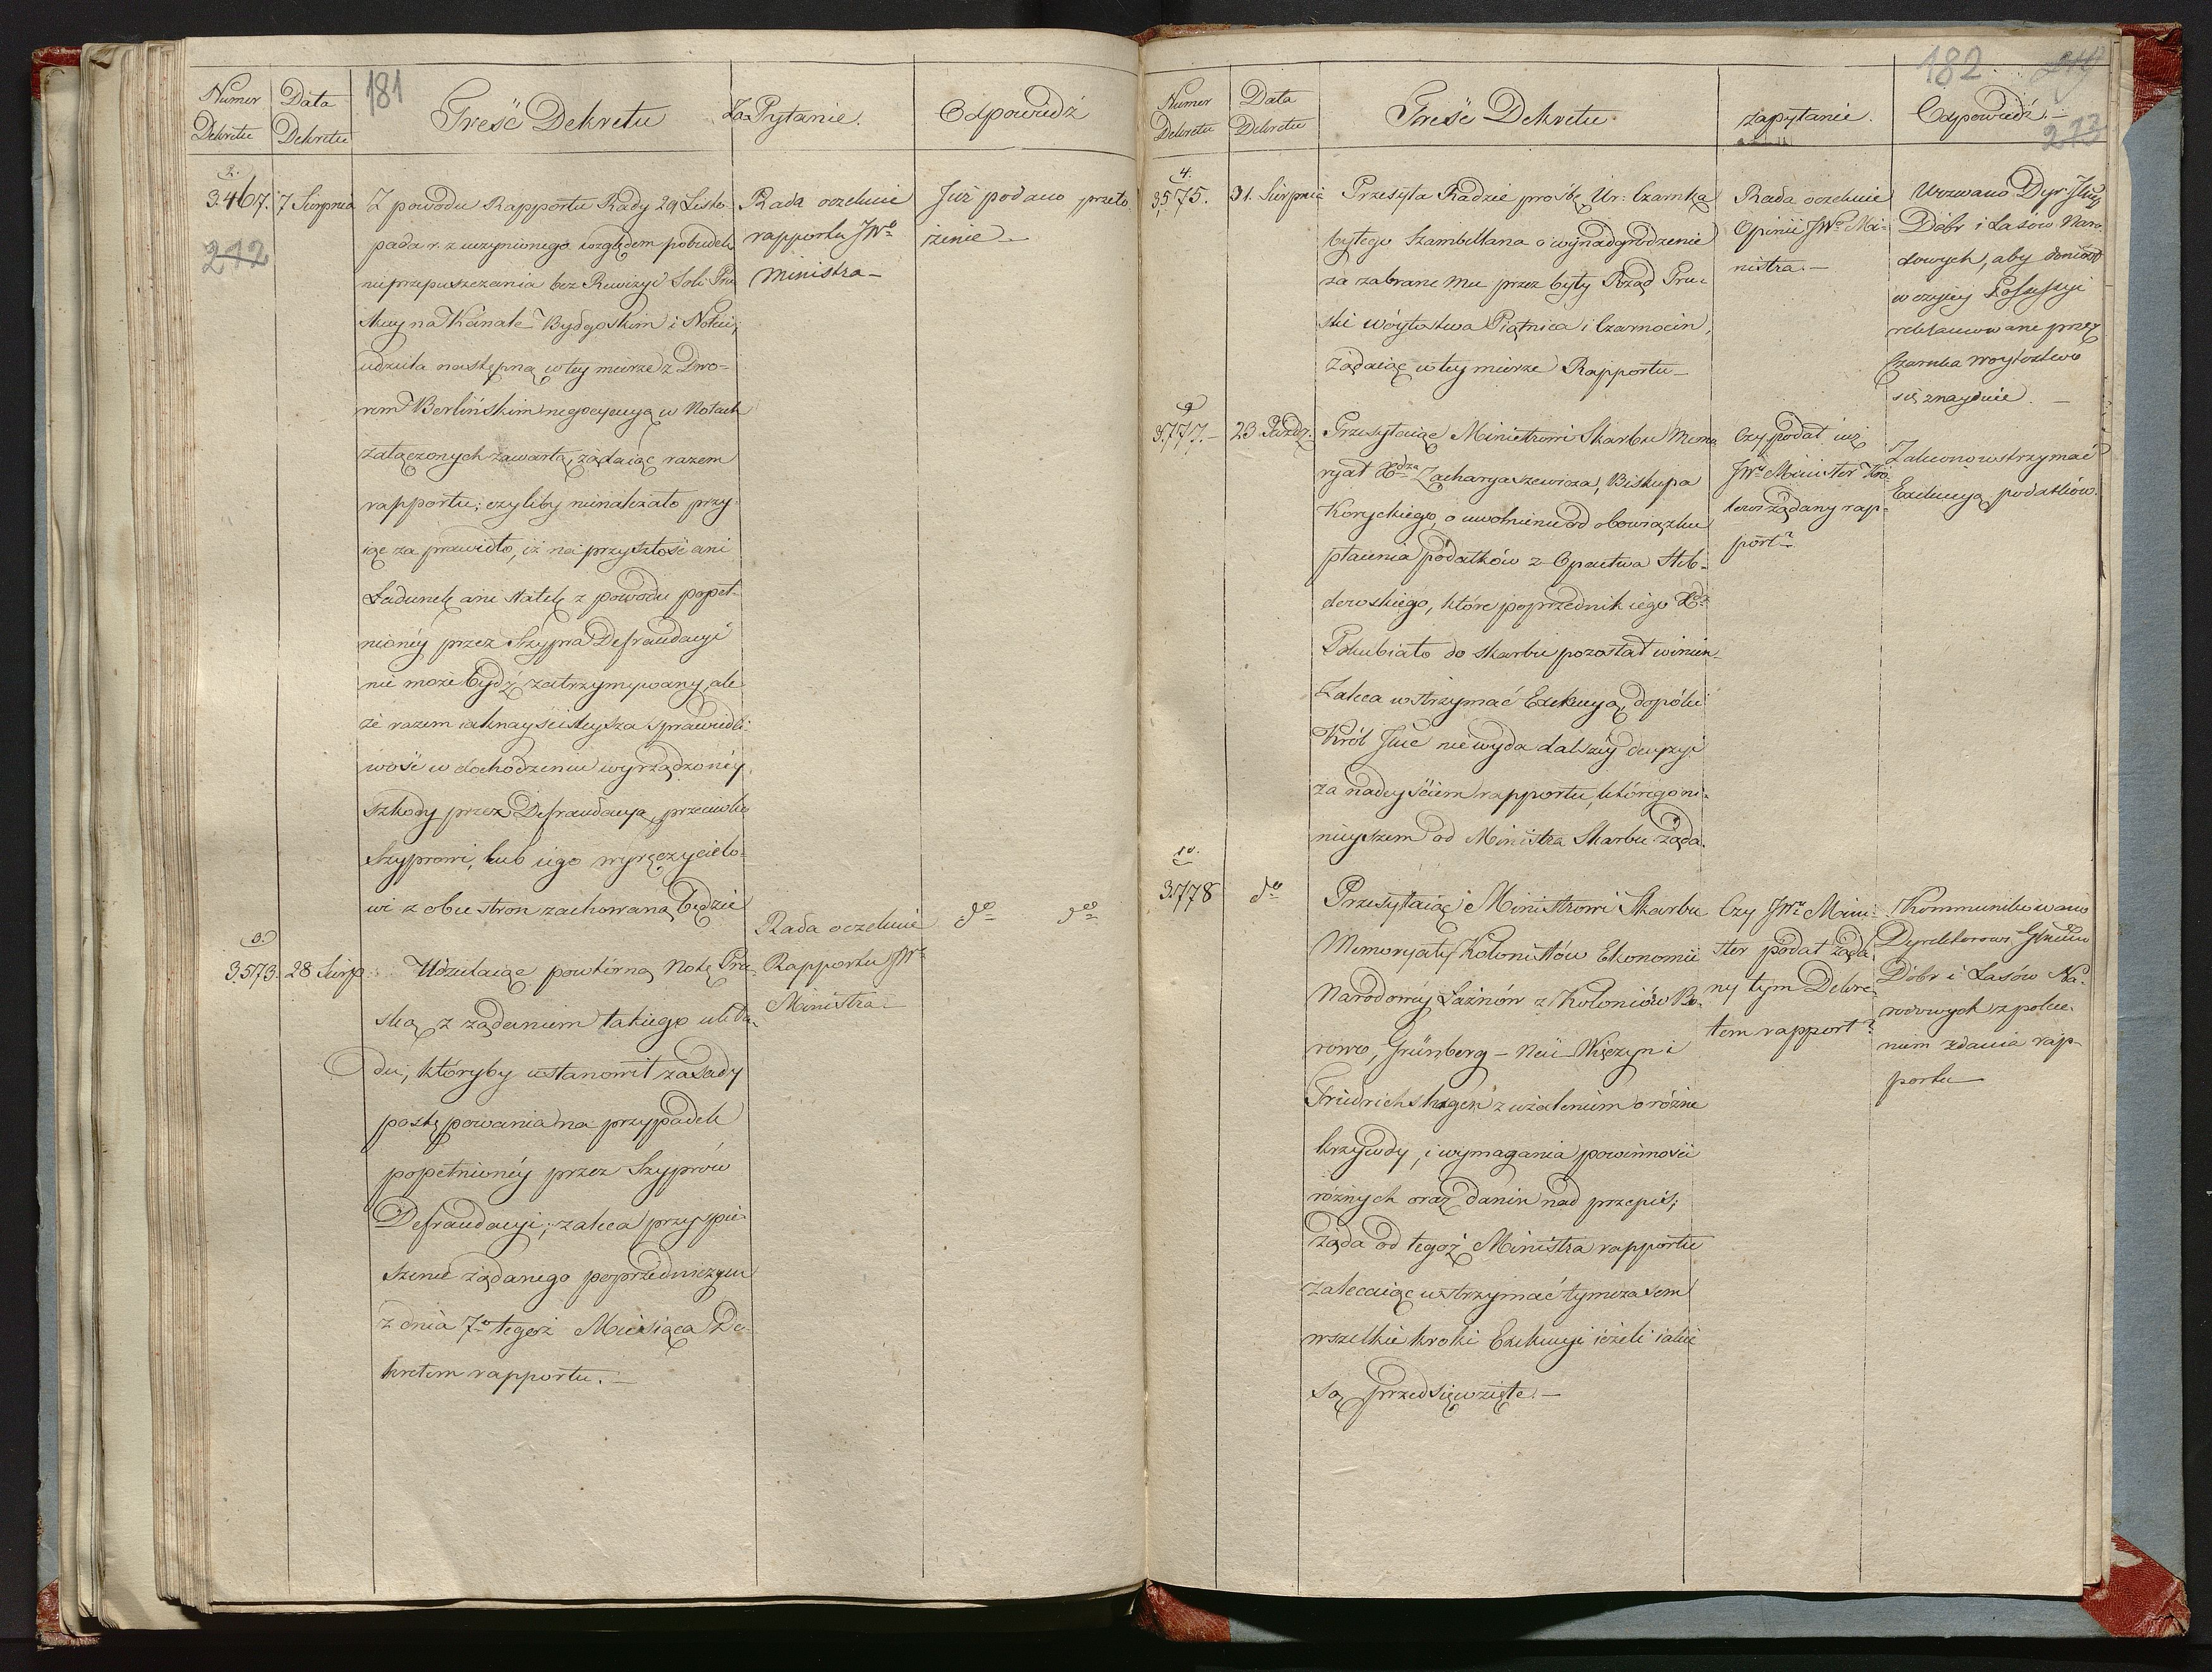 181
Numer Dekretu
Data Dekretu
Treść Dekretu
Za Pytanie.
Odpowiedź
2.
3.467.
212
7 Sierpnia
Z powodu Rapportu Rady 29 Listo-
pada r. z. uczynionego względem pobudek
nieprzepuszczania bez Rewizyi Soli Pru
skiey na Kanale Bydgoskim i Noteci,
udziela następną w tey mierze z Dwo-
rem Berlińskim negocyacyą w Notach
załączonych zawartą, żądaiąc razem
rapportu; czyliby nienależało przy-
iąc za prawidło, iż na przyszłość ani
Ładunek ani statek z powodu popeł-
nionéy przez Szypra Defraudacyi
nie może bydź zatrzymywany, ale
że razem iaknayściśleysza sprawiedli-
wość w dochodzeniu wyrządzonéy
szkody przez Defraudacyą, przeciwko
Szyprowi, lub iego wyręczycielo-
wi z obu stron zachowaną będzie
Rada oczekuie
rapportu JWo
Ministra—
Już podano przeło-
żenie—
3.
3.573.
28 Sierp:
Udzielaiąc powtórną Notę Pru-
ską z żądaniem takiego ukła-
du, któryby ustanowił zasady
postępowania na przypadek
popełnionéy przez Szyprów
Defraudacyi; zaleca przyspie-
szenie żądanego poprzedniczym
z dnia 7o tegoż Miesiąca De-
kretem rapportu.—
Rada oczekuie
Rapportu JWo
Ministra—
do do
182
213
Numer Dekretu
Data Dekretu
Treść Dekretu.
zapytanie.
Odpowiedź.—
4.
3,575.
31. Sierpnia
Przesyła Radzie prośbę Ur: Czarnka
byłego Szambellana o wynadgrodzenie
za zabrane mu przez były Rząd Pru-
ski wóytostwa Piątnica i Czarnocin,
żądaiąc w tey mierze Rapportu—
Rada oczekuie
Opinii JWo Mi-
nistra.—
Wezwano Dyr: Jlną
Dóbr i Lasów Naro-
dowych, aby doniosł
w czyiey Possessyi
reklamowane przez
Czarnka Woytostwo
się znayduie.—
9
3.777.—
23 Paźdz:
Przesyłaiąc Ministrowi Skarbu Memo
ryał Xdza Zacharyaszewicza, Biskupa
Koryckiego, o uwolnieniu od obowiązku
płacenia podatków z Opactwa Heb-
dowskiego, które poprzednik iego Xdz
Pokubiało do skarbu pozostał winien
Zaleca wstrzymać Exekucyą, dopóki
Król Jmć nie wyda dalszéy decyzyi
za nadeyściem rapportu, którego ni-
nieyszem od Ministra Skarbu żąda.
Czy podał iuż
JWy Minister Kró-
lowi żądany rap-
port?
Zalecono wstrzymać
Exekucyą podatków.
10.
3.778
do
Przesyłaiąc Ministrowi Skarbu
Memoryały Kolonistów Ekonomii
Narodowéy Łaźnów z Koloniów Bo-
rowo, Grünberg—Neü—Wiączyn i
Friedrichshagen z użaleniem o różne
krzywdy, i wymagania powinności
różnych oraz danin nad przepis,
żąda od tegoż Ministra rapportu
zalecaiąc wstrzymać tymczasem
wszelkie kroki Exekucyi ieżeli iakie
są przedsięwzięte.—
Czy JWy Mini-
ster podał żąda-
ny tym Dekre-
tem rapport?
Kommunikowano
Dyrektorowi Glnemu
Dóbr i Lasów Na-
rodowych z polece-
niem zdania rap-
portu—